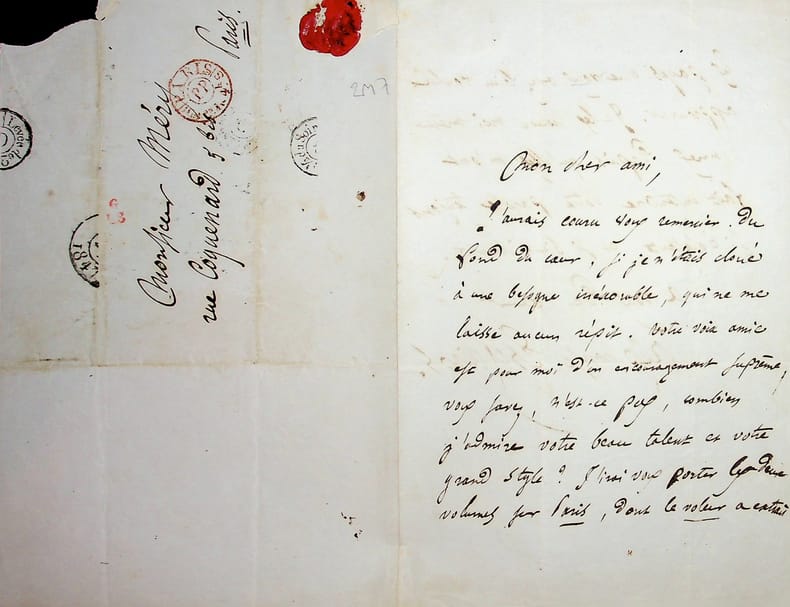 Paris.
PARIS
Monsieur Méry
rue Coquenard 5 bis
2M7
Mon cher ami,
J'aurais couru vous remercier du
fond du cœur, si je n'étais cloué
à une besogne inexorable, qui ne me
laisse aucun répit. Votre voix amie
est pour moi d'un encouragement suprême,
vous savez, n'est-ce pas, combien
j'admire votre beau talent et votre
grand style ? J'irai vous porter les deux
volumes sur Paris, dont le voleur a extrait